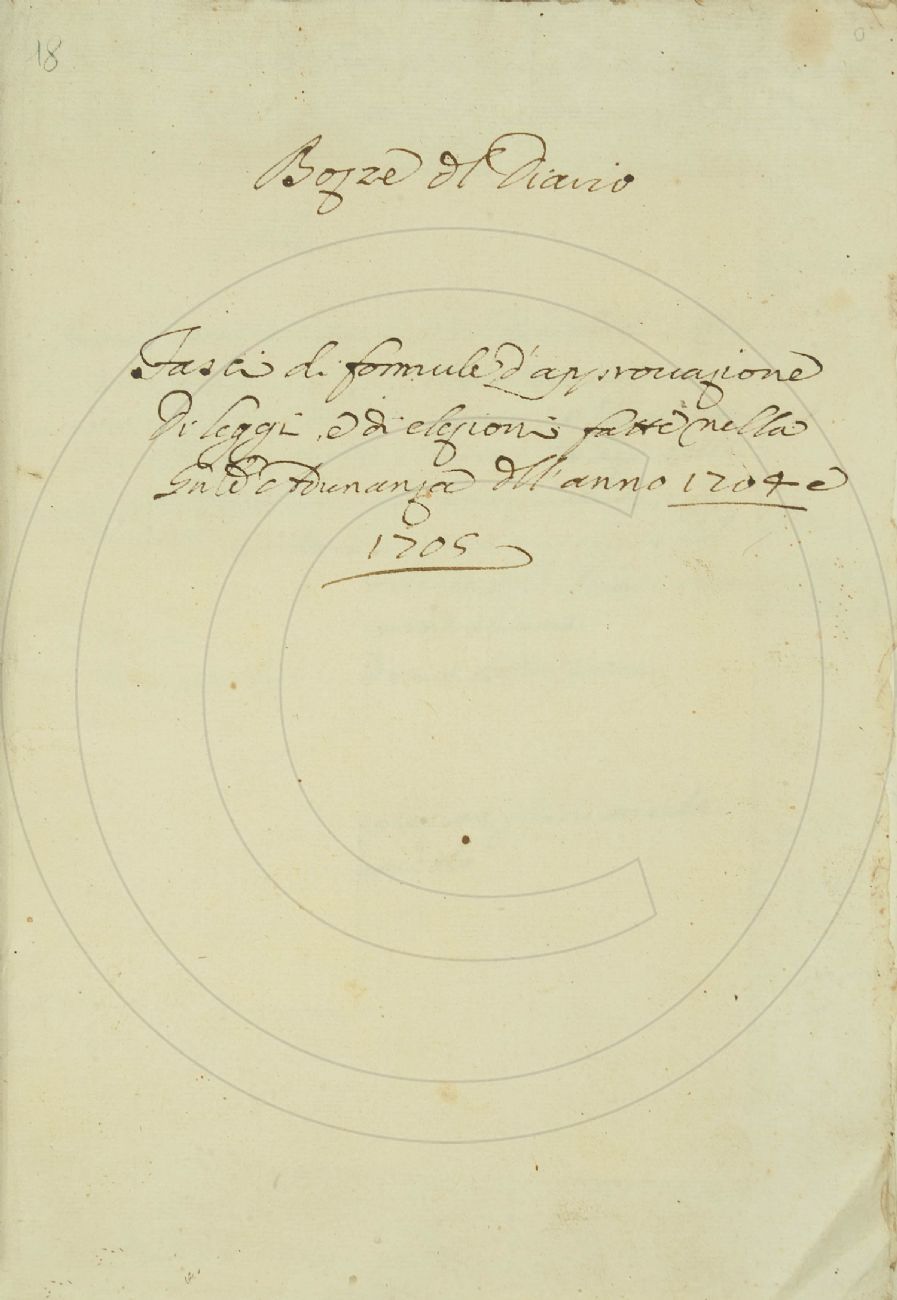 18
Bozze dl Diario
Fasci di formule d'approuazione
Di leggi, e di elezioni fatte nella
Adunanza dell'anno 1704 e
1705